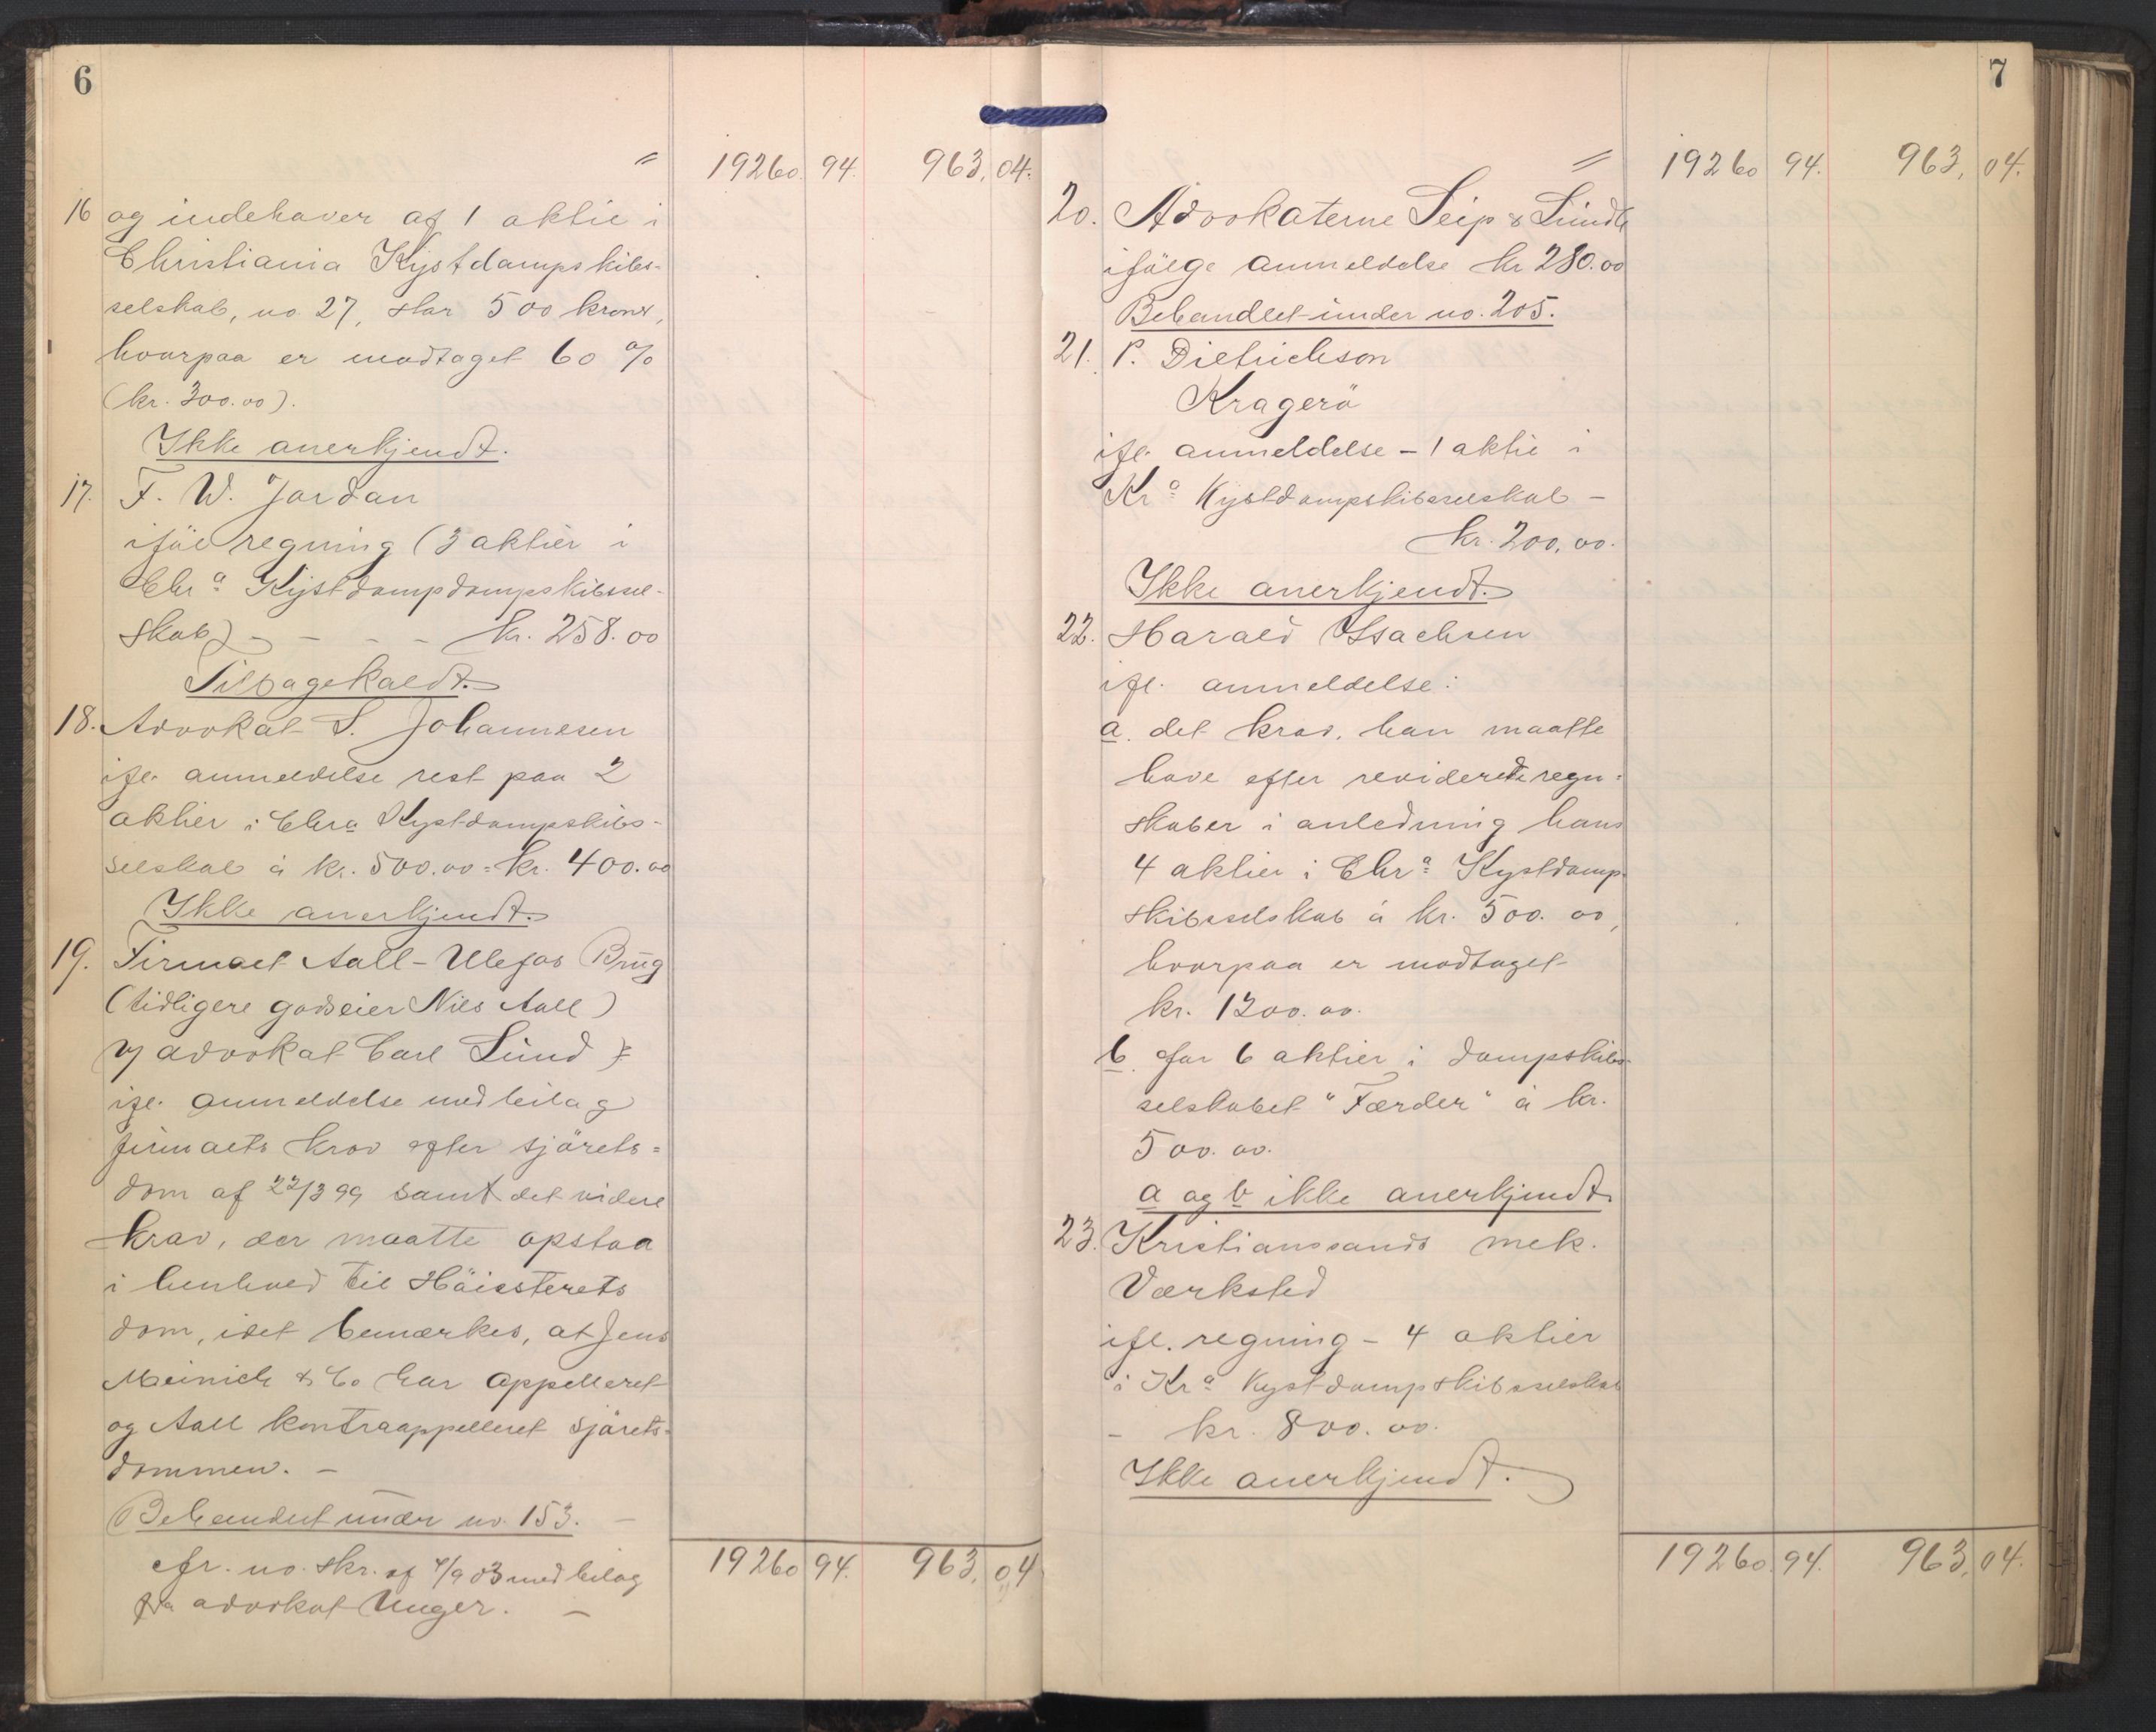 6
〃 19260. 94. 963, 04.
16 og indehaver af 1 aktie i
Christiania Kystdampskibs-
selskab, no 27, stor 500 kroner,
hvorpaa er modtaget 60 %
(kr. 300.00).
Ikke anerkjendt.
17. F. W. Jordan
iföl regning (3 aktier i
Chra Kystdampdampskibssel-
skab) - - - - kr. 258.00
Tilbagekaldt.
18. Advokat S. Johannesen
ifl. anmeldelse rest paa 2
aktier i Chra Kystdampskibs-
selskab à kr. 500.00 = kr. 400.00
Ikke anerkjendt.
19. Firmaet Aall-Ulefos Brug
(tidligere godseier Niels Aall)
v/ advokat Carl Lund
ifl. anmeldelse med bilag
firmaets krav efter sjörets-
dom af 22/3 99 samt det videre
krav, der maatte opstaa
i henhold til Höiesterets
dom, idet bemærkes, at Jens
Meinich & Co har appelleret
og Aall kontraappelleret sjörets-
dommen. -
Behandlet under no. 153. -
cfr. no. skr. af 4/9 03 med bilag
fra advokat Unger. -
19260 94. 963, 04
7
〃 19260 94. 963, 04.
20. Advokaterne Seip & Lundh
ifölge anmeldelse kr 280.00
Behandlet under no. 205.
21. P. Dietrichson
Kragerö
ifl. anmeldelse - 1 aktie i
Kra Kystdampskibsselskab -
kr. 200,00.
Ikke anerkjendt.
22. Harald Isachsen
ifl. anmeldelse:
a. det krav, han maatte
have efter reviderede regn-
skaber i anledning hans
4 aktier i Chra Kystdamp-
skibsselskab à kr. 500.00,
hvorpaa er modtaget
kr. 1200.00.
b. for 6 aktier i dampskibs-
selskabet "Færder" à kr.
500.00.
a og b ikke anerkjendt.
23. Kristianssands mek.
Værksted
ifl. regning - 4 aktier
i Kra Kystdampskibsselskab
- kr. 800.00.
Ikke anerkjendt.
19260. 94. 963, 04.